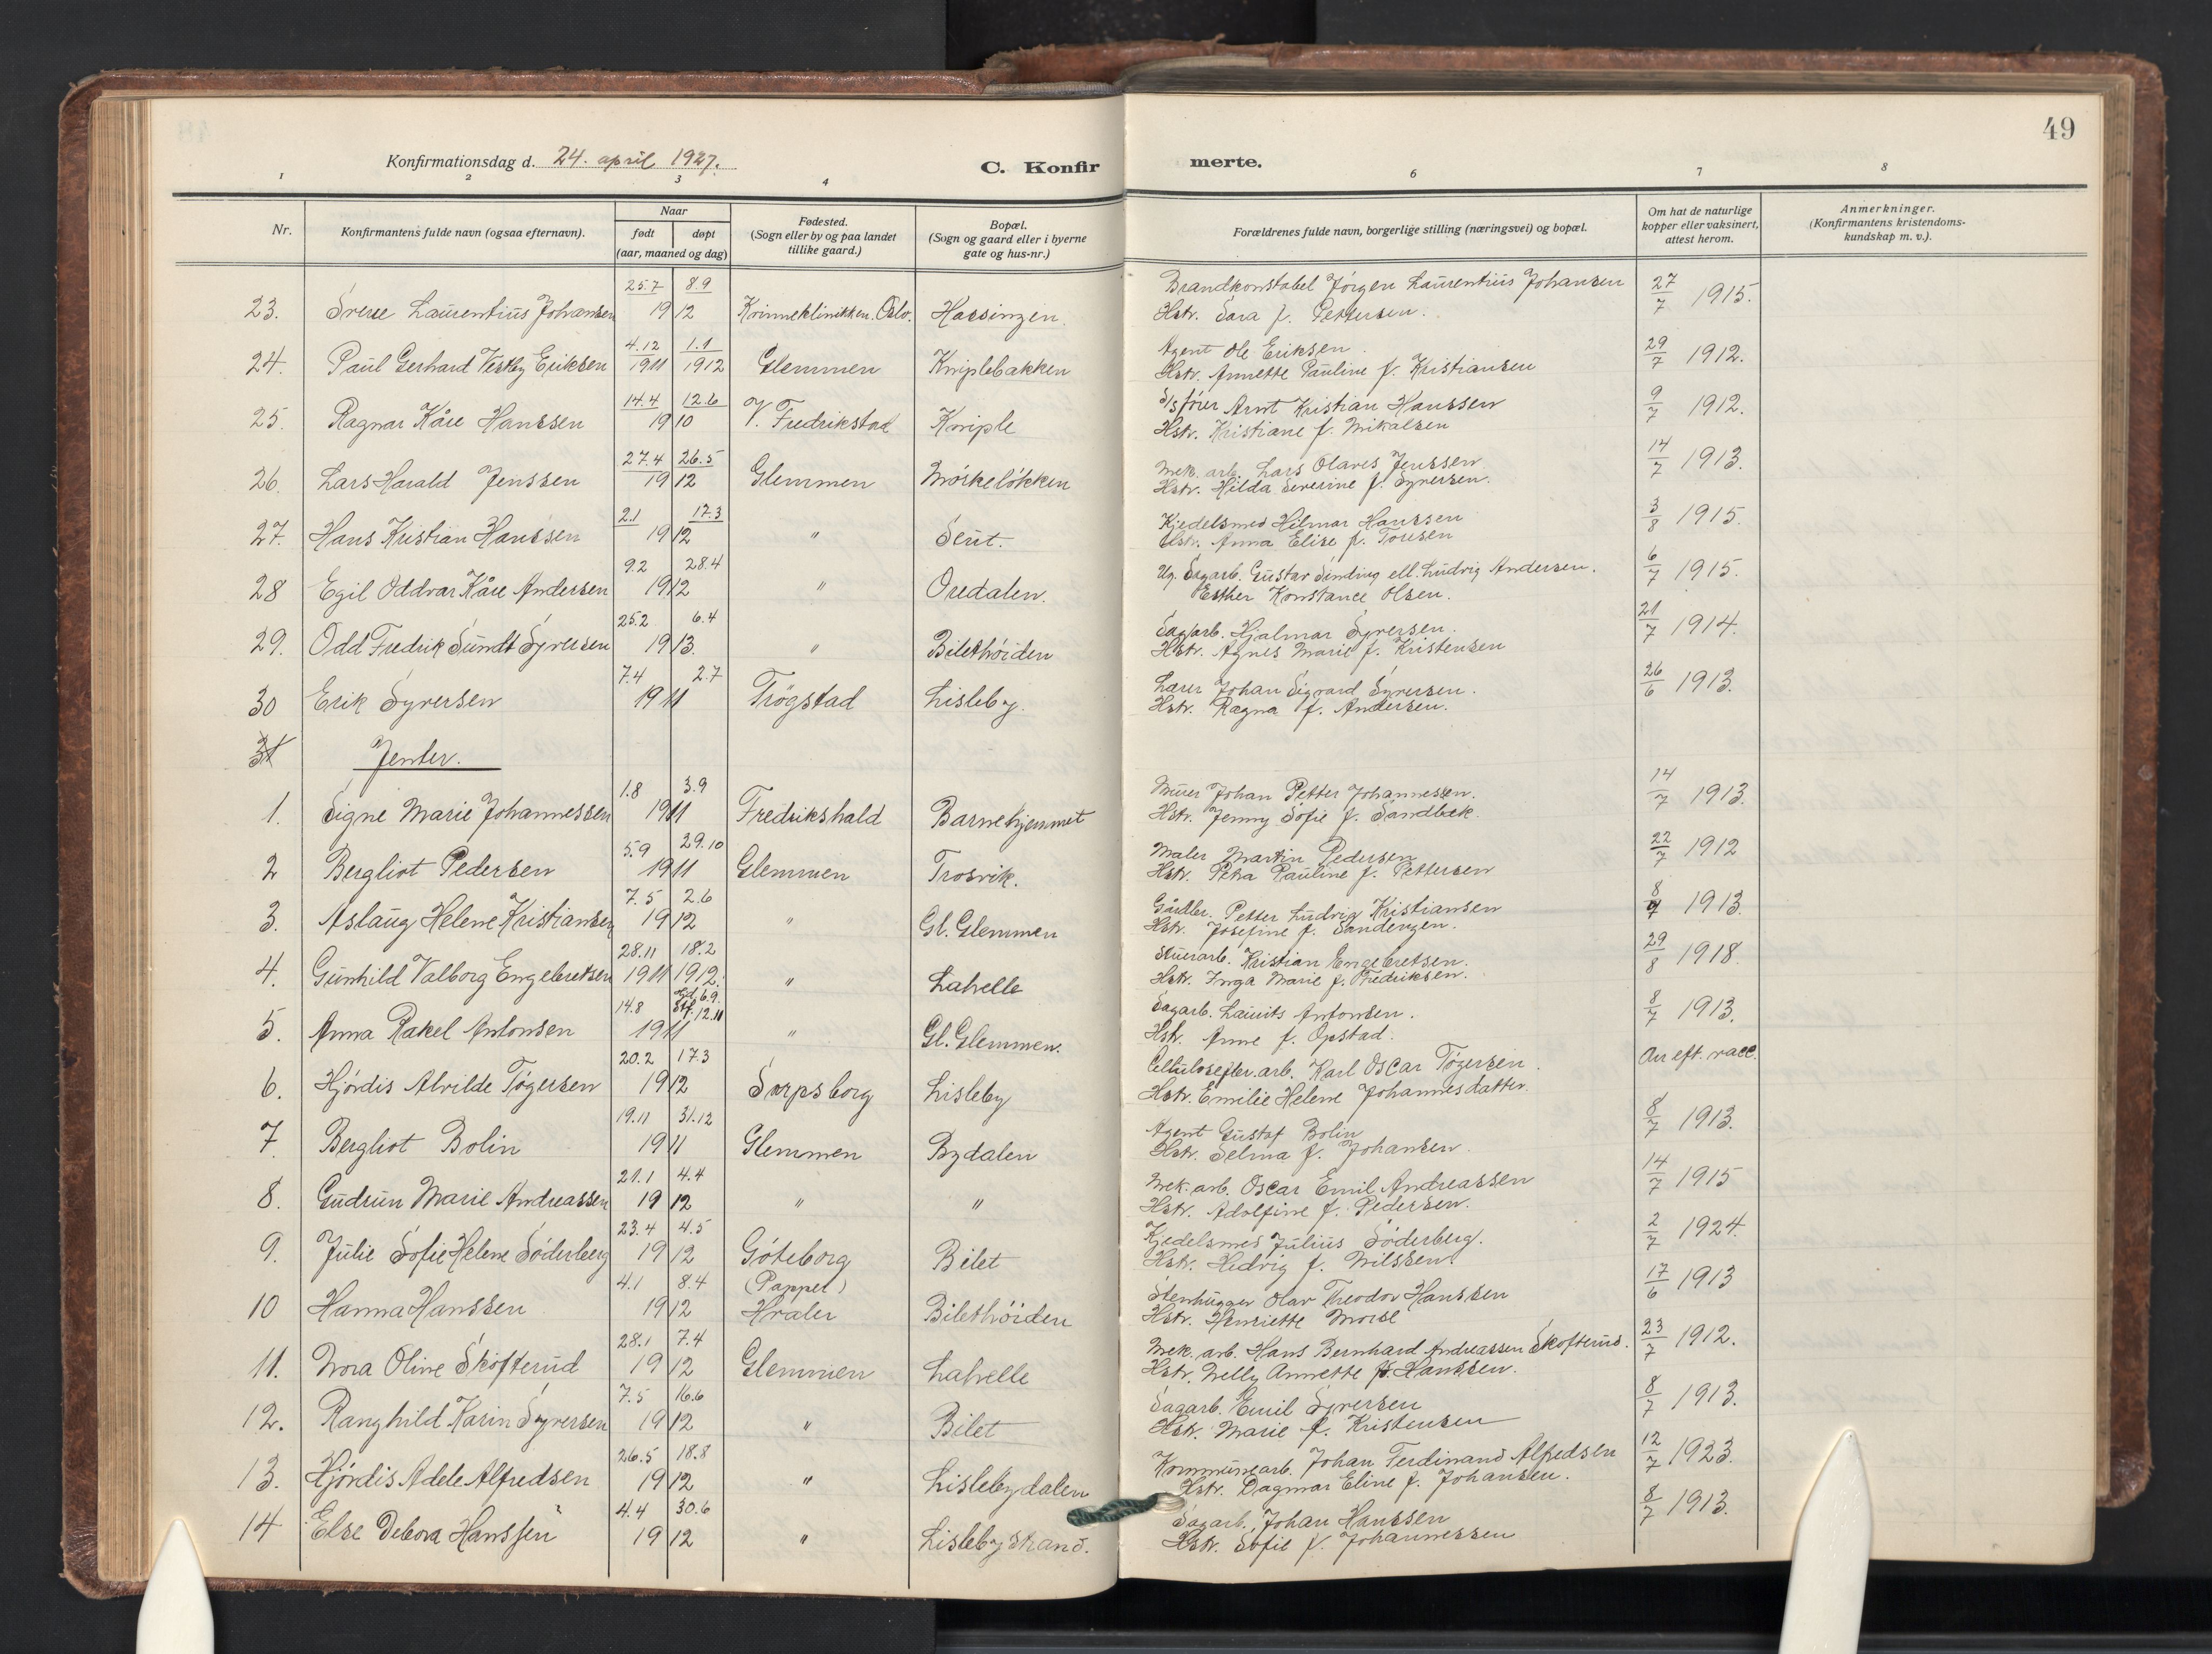 49
Konfirmationsdag d. 24. april 1927.
C. Konfirmerte.
1 2 3 4 6 7 8
Nr.
Konfirmantens fulde navn (ogsaa efternavn).
Naar
født døpt
(aar, maaned og dag)
Fødested.
(Sogn eller by og paa landet
tillike gaard.)
Bopæl.
(Sogn og gaard eller i byerne
gate og hus-nr.)
Forældrenes fulde navn, borgerlige stilling (næringsvei) og bopæl.
Om hat de naturlige
kopper eller vaksinert,
attest herom.
Anmerkninger.
(Konfirmantens kristendoms-
kundskap m. v.).
25.7 8.9 Brandkonstabel Jörgen Laurentius Johansen
23. Sverre Laurentius Johansen 1912 Kvinneklinikken. Oslo. Hassingen. Hstr. Sara f. Pettersen. 27/7 1915.
4.12 1.1 Agent Ole Eriksen
24. Paul Gerhard Vestby Eriksen 1911 1912 Glemmen Kniplebakken Hstr. Annette Pauline f. Kristiansen 29/7 1912.
14.4 12.6 S/s förer Arnt Kristian Hanssen
25. Ragnar Kåre Hanssen 1910 V. Fredrikstad Kniple Hstr. Kristiane f. Mikalsen 9/7 1912.
27.4 26.5 Mek. arb. Lars Olaves Jenssen
26. Lars Harald Jenssen 1912 Glemmen Mörkelökken Hstr. Hilda Severine f. Syversen. 14/7 1913.
2.1 17.3 Kjedelsmed Hilmar Hanssen
27. Hans Kristian Hanssen 1912 " Seut. Hstr. Anna Elise f. Toresen 3/8 1915.
9.2 28.4 Ug. Sagarb. Gustav Sinding ell. Ludvig Andersen.
28 Egil Oddvar Kåre Andersen 1912 " Oredalen. Esther Konstance Olsen. 6/7 1915.
25.2 6.4 Sagarb. Hjalmar Syversen.
29. Odd Fredrik Sundt Syversen 1913. " Bilethöiden Hstr. Agnes Marie f. Kristensen 21/7 1914.
7.4 2.7 Lærer Johan Sigvard Syversen.
30 Erik Syversen 1911 Trögstad Lisleby. Hstr. Ragna f. Andersen. 26/6 1913.
31 Jenter.
1.8 3.9 Murer Johan Petter Johannessen.
1. Signe Marie Johannessen 1911 Fredrikshald Barnehjemmet Hstr. Jenny Sofie f. Sandbæk. 14/7 1913.
5.9 29.10 Maler Martin Pedersen
2 Bergliot Pedersen 1911 Glemmen Trosvik. Hstr. Petra Pauline f. Pettersen 22/7 1912
7.5 2.6 Gårdbr. Petter Ludvig Kristiansen
3. Aslaug Helene Kristiansen 1912 " Gl. Glemmen Hstr. Josefine f. Sandengen. 8/7 1913.
28.11 18.2 Stuerarb. Kristian Engebretsen.
4. Gunhild Valborg Engebretsen 1911 1912. " Lahelle Hstr. Inga Marie f. Fredriksen. 29/8 1918.
14.8 6.9. Stf. 12.11 Sagarb. Laurits Antonsen.
5. Anna Rakel Antonsen 1911 " Gl. Glemmen. Hstr. Anne f. Opstad. 8/7 1913.
20.2 17.3 arb. Karl Oscar Tögersen.
6. Hjördis Alvilde Tögersen 1912 Sarpsborg Lisleby Hstr. Emilie Helene Johannesdatter. An eft. vacc.
19.11 31.12 Agent Gustaf Bolin
7. Bergliot Bolin 1911 Glemmen Bydalen Hstr. Selma f. Johansen. 8/7 1913.
21.1 4.4 Mek. arb. Oscar Emil Andreassen
8. Gudrun Marie Andreassen 1912 " " Hstr. Adolfine f. Pedersen. 14/7 1915
23.4 4.5 Kjedelsmed Julius Söderberg.
9. Julie Sofie Helene Söderberg 1912 Göteborg Bilet Hstr. Hedvig f. Nilssen. 2/7 1924.
4.1 8.4 (Papper) Stenhugger Olav Theodor Hanssen
10 Hanna Hanssen 1912 Hvaler Bilethöiden Hstr. Henriette Morse 17/6 1913
28.1 7.4 Mek. arb. Hans Bernhard Andreassen Skofterud.
11. Nora Oline Skofterud 1912 Glemmen Lahelle Hstr. Nelly Annette f. Hanssen. 23/7 1912.
7.5 16.6 Sagarb. Emil Syversen
12. Ranghild Karin Syversen 1912 " Bilet Hstr. Marie f. Kristensen 8/7 1913.
26.5 18.8 Kommunearb. Johan Ferdinand Alfredsen
13. Hjördis Adele Alfredsen 1912 " Lislebydalen Hstr. Dagmar Eline f. Johansen. 12/7 1923.
4.4 30.6 Sagarb. Johan Hanssen
14 Else Debora Hanssen 1912 " Lisleby Strand. Hstr. Sofie f. Johannessen 8/7 1913.